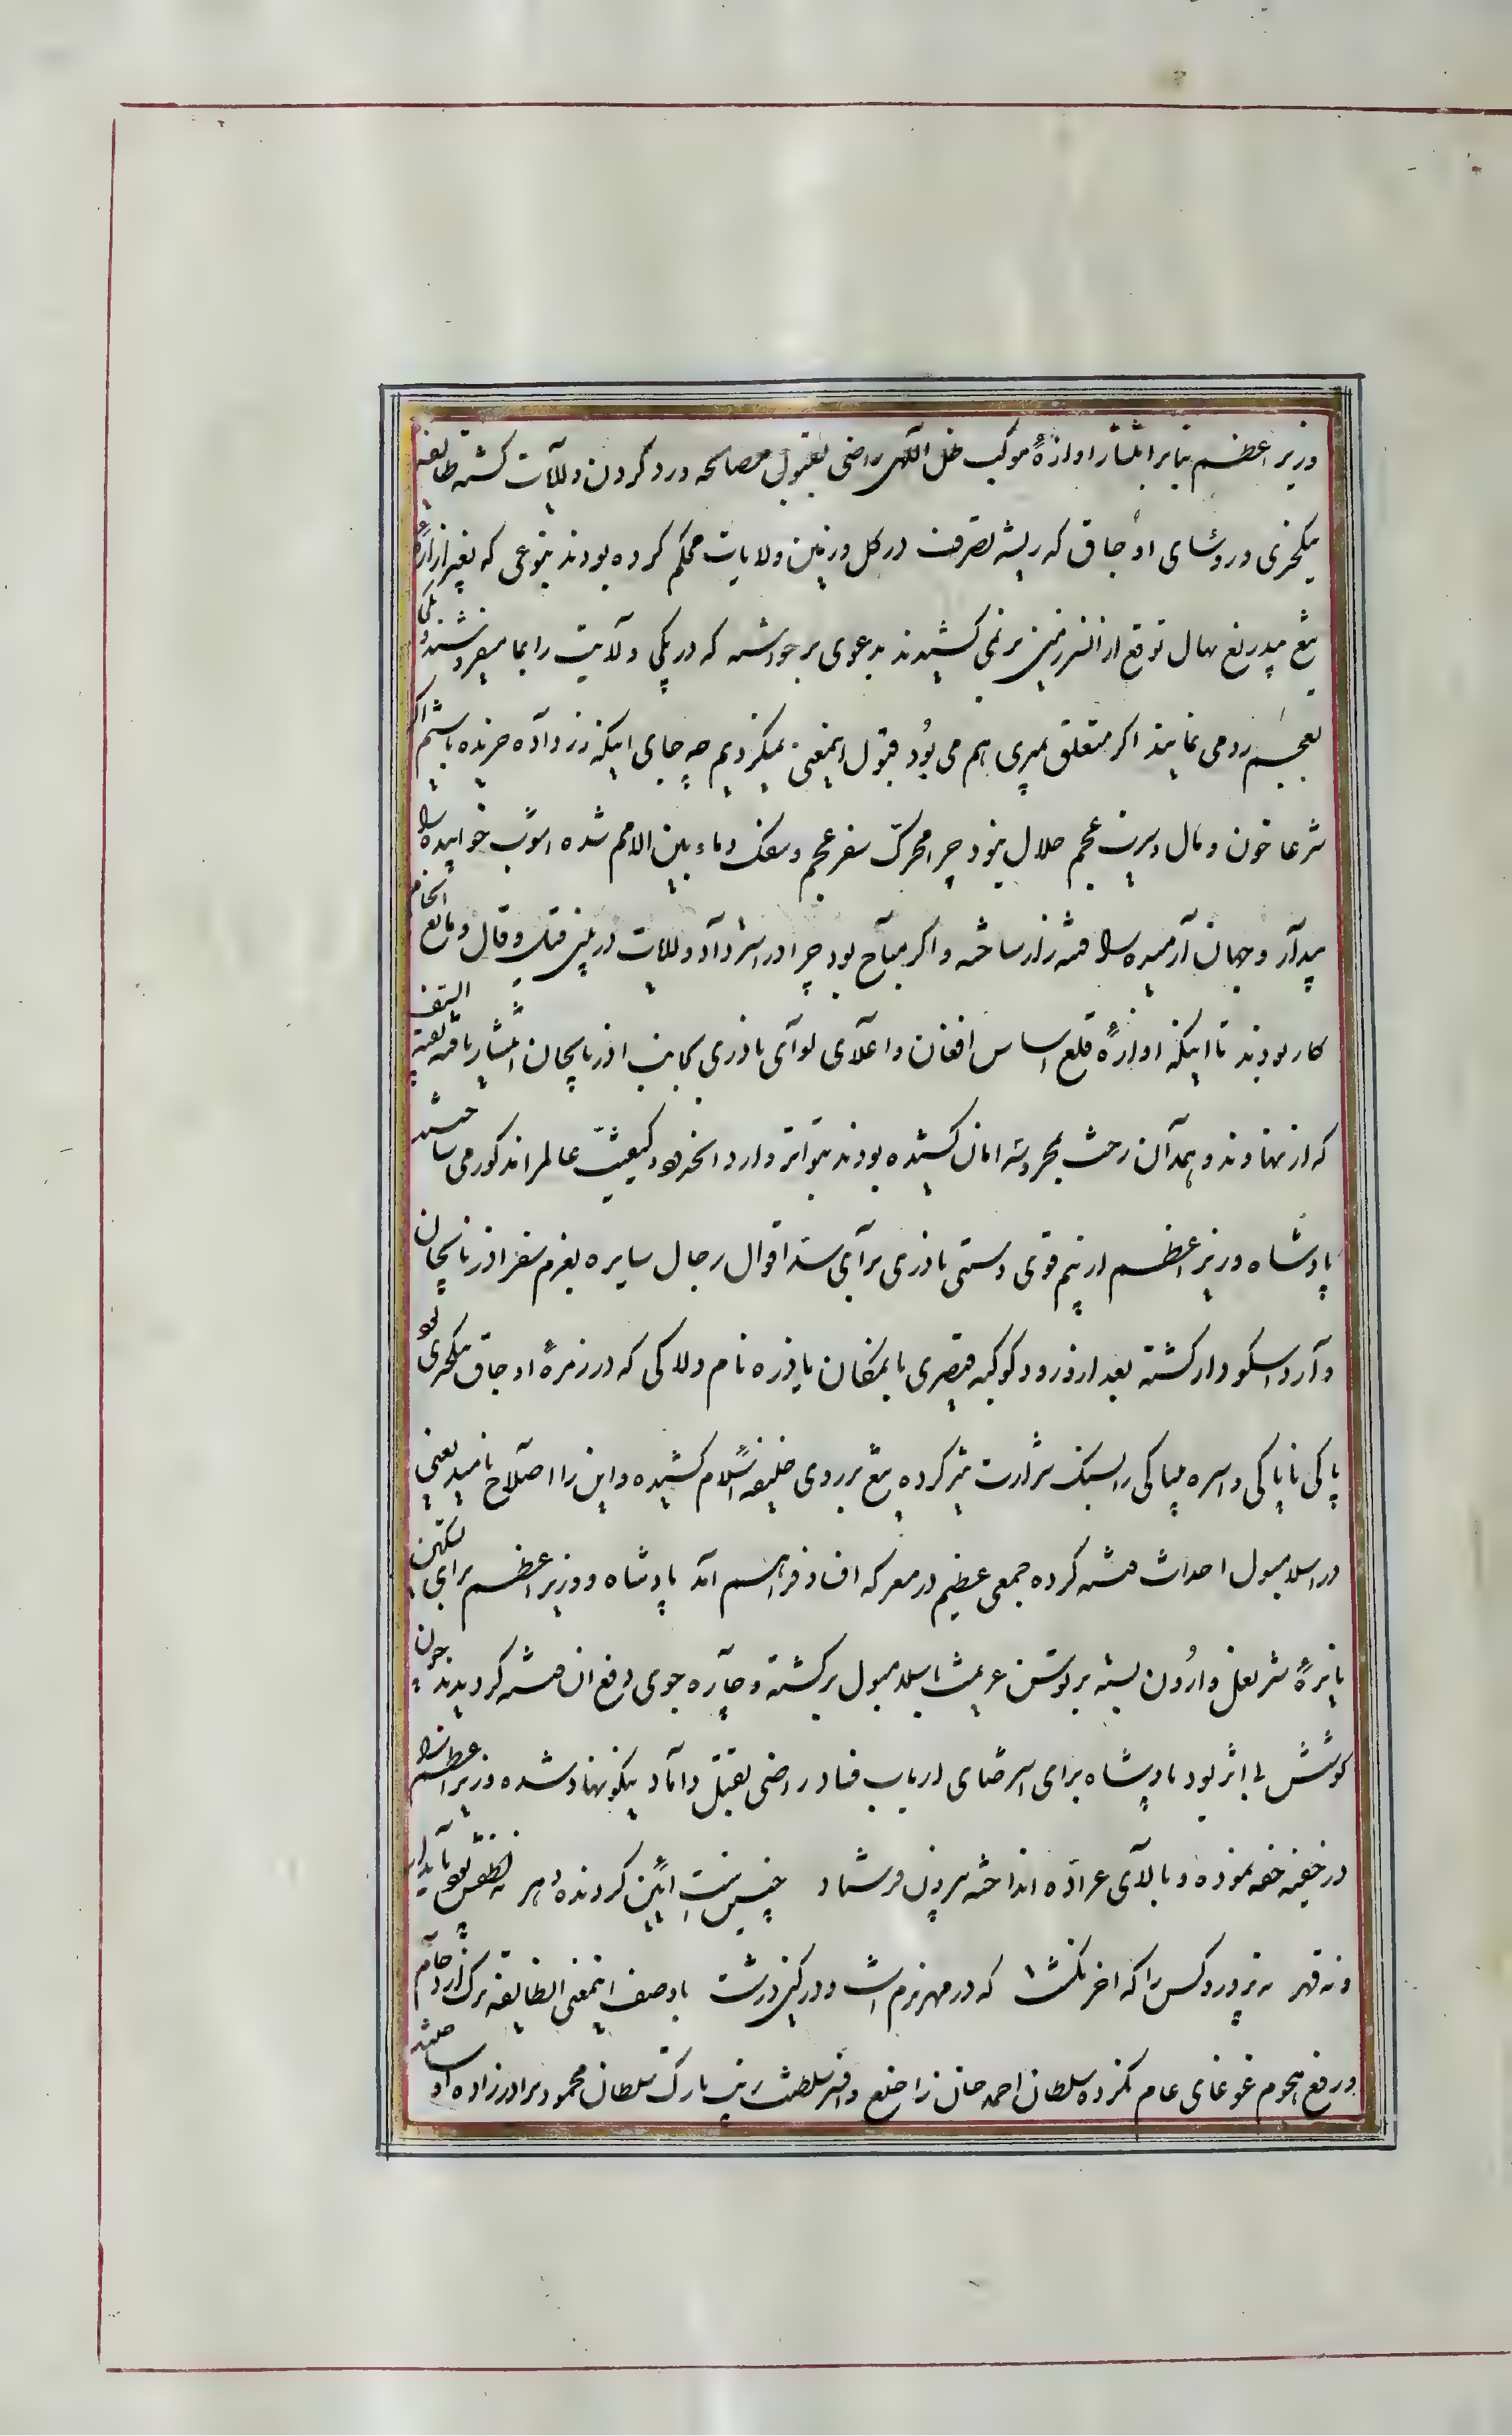 وزیر اعظم بنابر انتشار اوازهٔ موکب ظل اللهی راضی بقبول مصالحه و رد کردن ولایات کشته طایفه
ینکچری و روسای اوجاق که ریشه تصرف در کل ورزمین ولایات محکم کرده بودند بنوعی که بغیر از اره
تیغ بیدریغ نهال توقع از انسرزمین بر نمی کشیدند بدعوی برخواسته که در یکی ولایت را بما میفروشند و یکی
بعجم رد می نمایند اکر متعلق بپری هم می بود قبول اینمعنی نمیکردیم چه جای اینکه زر داده خریده باشیم اکر
شرعا خون و مال و سرب عجم حلال نبود چرا محرک سفر عجم و سفک دماء بین الامم شده اشوب خوابیده را
بیدار و جهان آرمیده را فتنه زار ساخته و اکر مباح بود چرا در استرداد ولایات در پی قیل و قال و مانع انجام
کار بودند تا اینکه اوازهٔ قلع اساس افغان و اعلای لوآی نادری بجانب اذربایجان انتشار یافته بقیة السیف
که از نهاوند و همدان رخت بمحروسه امان کشیده بودند بتواتر وارد انحدود و کیفیت عالم را مذکور می ساختند
پادشاه و وزیر اعظم از بیم قوی دستی نادری برآی سد اقوال رجال سایره بعزم سفر اذربایجان
وآرد اسکودار کشته بعد از ورود کوکبه قیصری بانمکان پاذره نام دلاکی که در زمرهٔ اوجاق ینکچری بود
پاکی ناپاکی و اسره بیباکی را بسنک شرارت تیز کرده تیغ بر روی خلیفه اسلام کشیده و این را اصلاح نامید یعنی
در اسلامبول احداث فتنه کرده جمعی عظیم در معرکه افساد فراهم آمد پادشاه و وزیر اعظم برای تسکین
نایرهٔ شر نعل وارون بسته بر توسن عزیمت باسلامبول برکشته و چاره جوی دفع ان فتنه کردیدند چون
کوشش بی اثر بود پادشاه برای استرضای ارباب فساد راضی بقتل داماد نیکو نهاد شده وزیر اعظم را
در خفیه خفه نموده و بالآی عراده انداخته بیرون فرستاد چنین ست ایین کردنده دهر نه لطفش بود پایدار
و نه قهر نه پرورد کس را که اخر نکشت که در مهر نرم است و در کین درشت با وصف اینمعنی انطایفه ترک ازدحام
و رفع هجوم غوغای عام نکرده سلطان احمد خان را خلع و افسر سلطنت زیب تارک سلطان محمود برادرزاده او ساختند